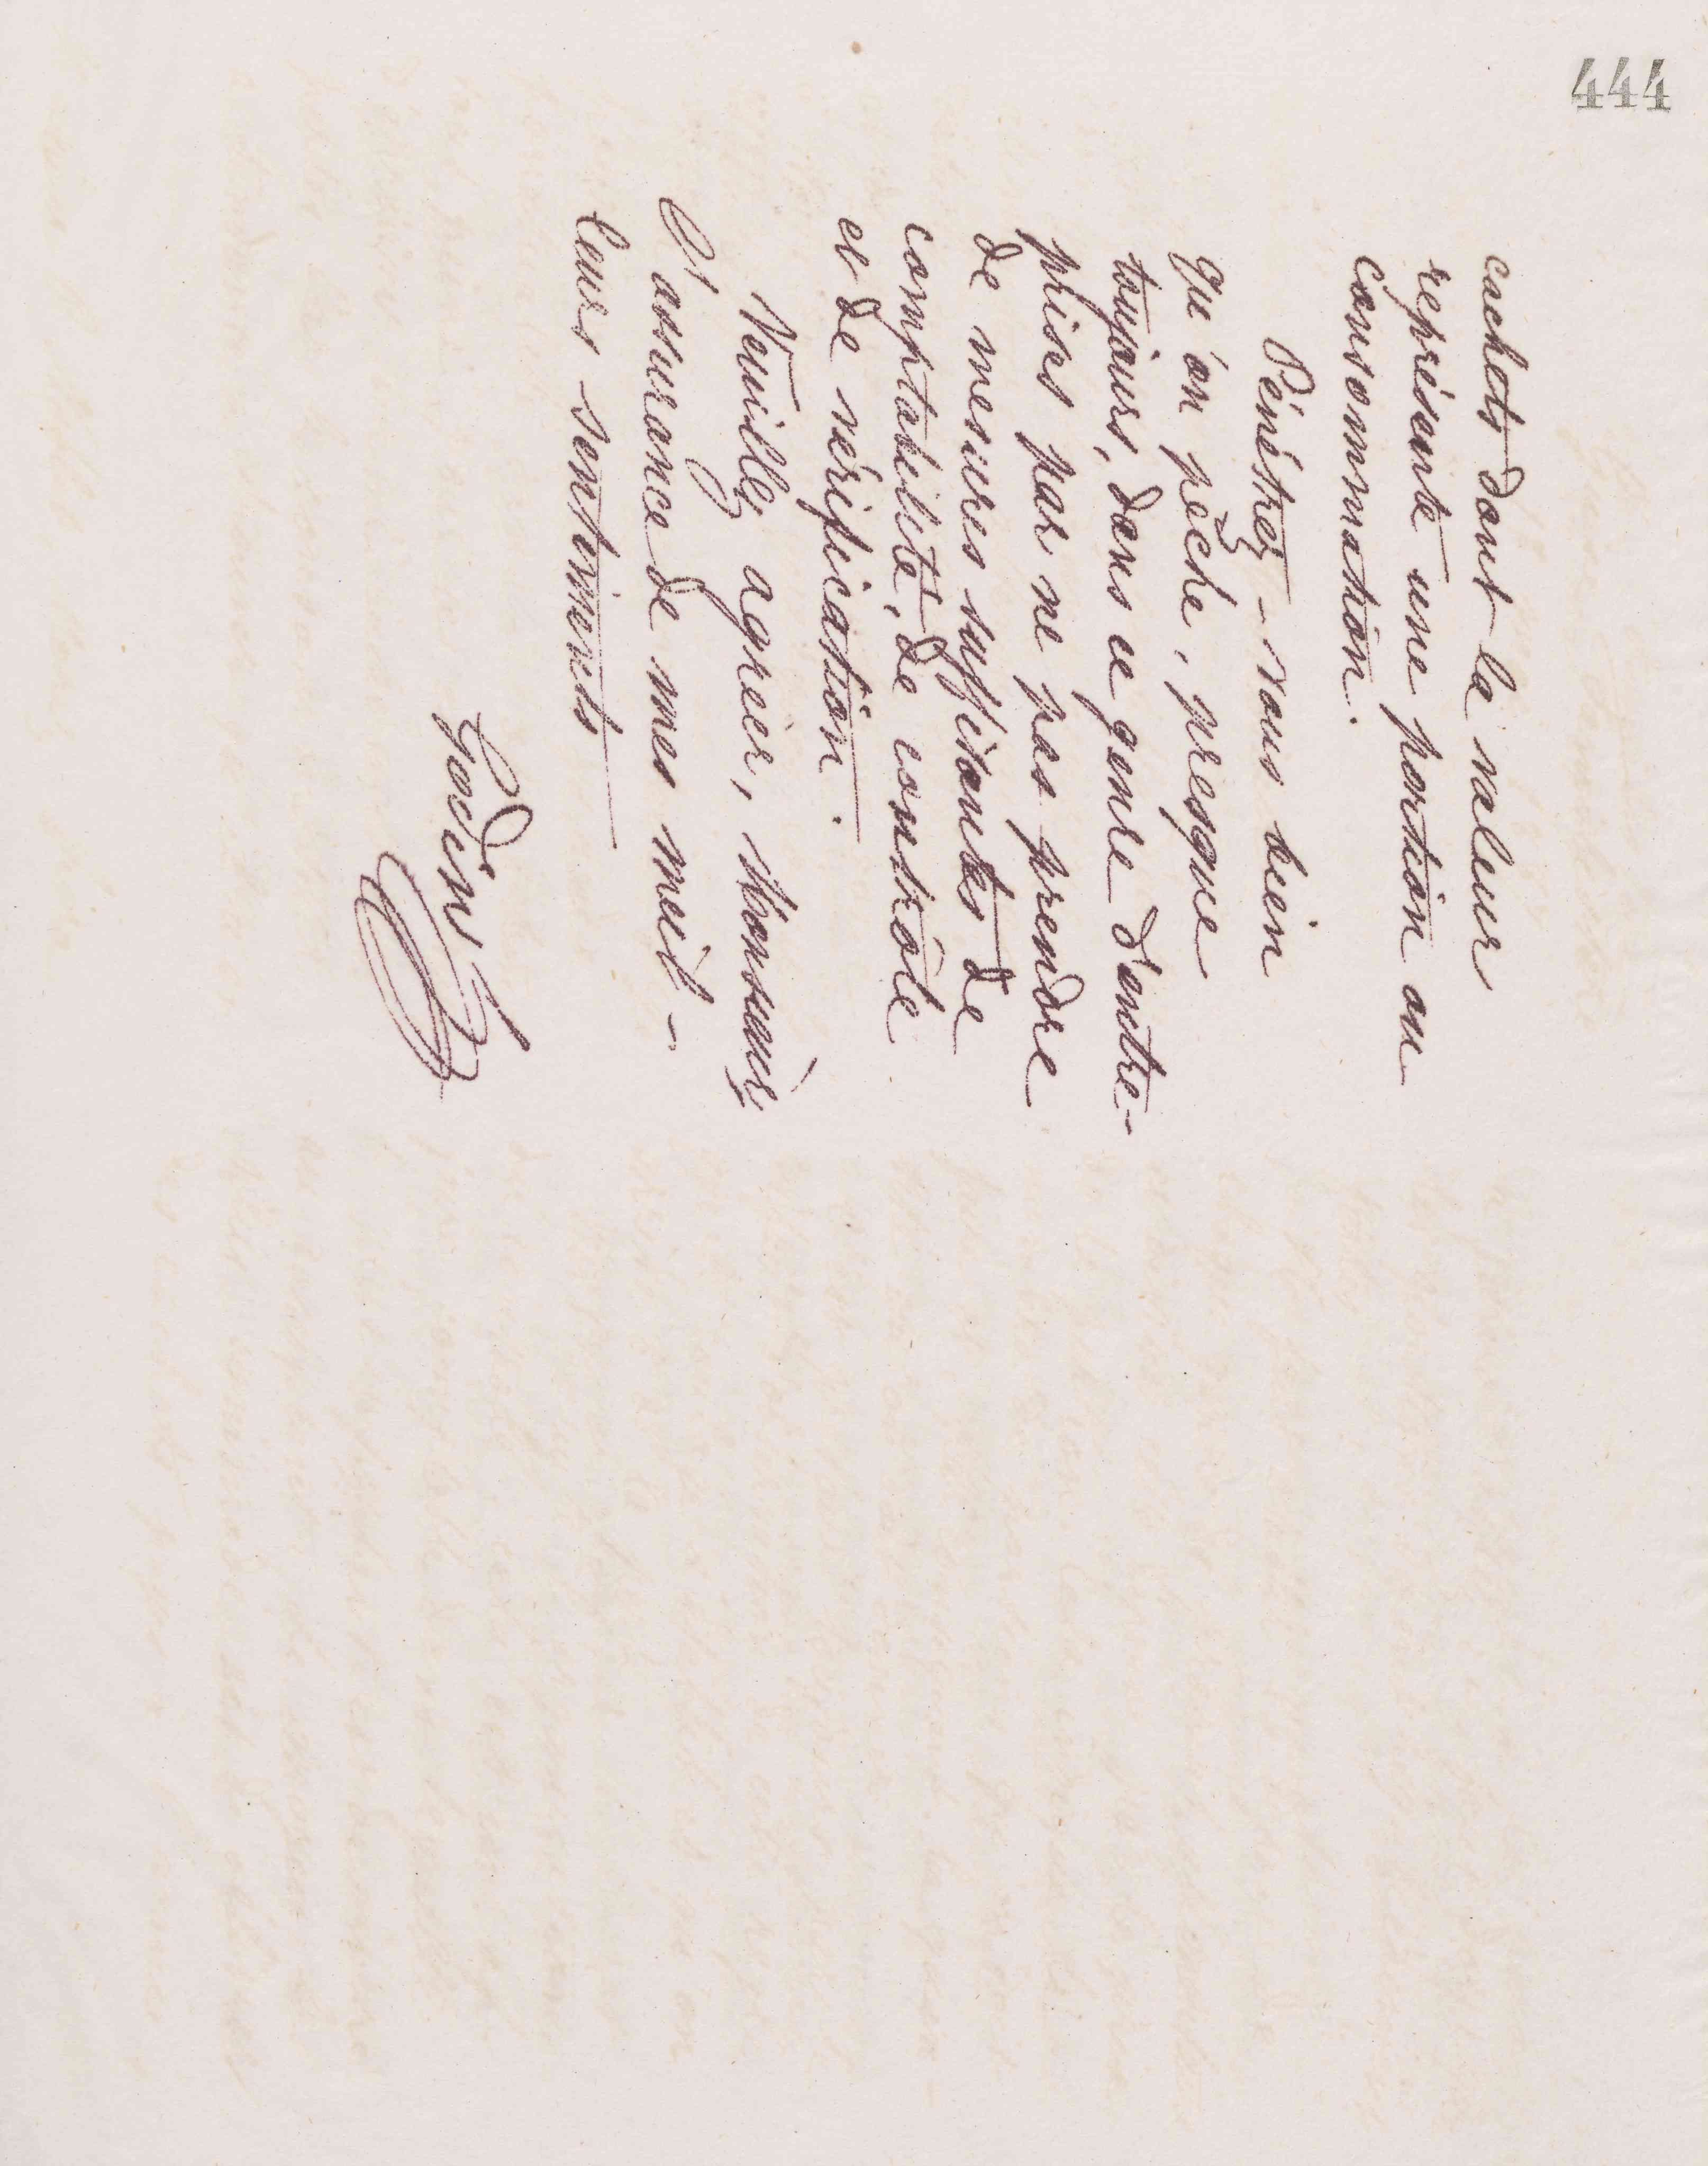 444
cachets dont la valeur
représente une portion ou
consommation.
Pénétrez-vous bien
qu'on pèche, presque
toujours, dans ce genre d'entre-
prises par ne pas prendre
de mesures suffisantes de
comptabilité, de contrôle
et de vérification.
Veuillez agréer, Monsieur,
l'assurance de mes meil-
leurs sentiments
Godin